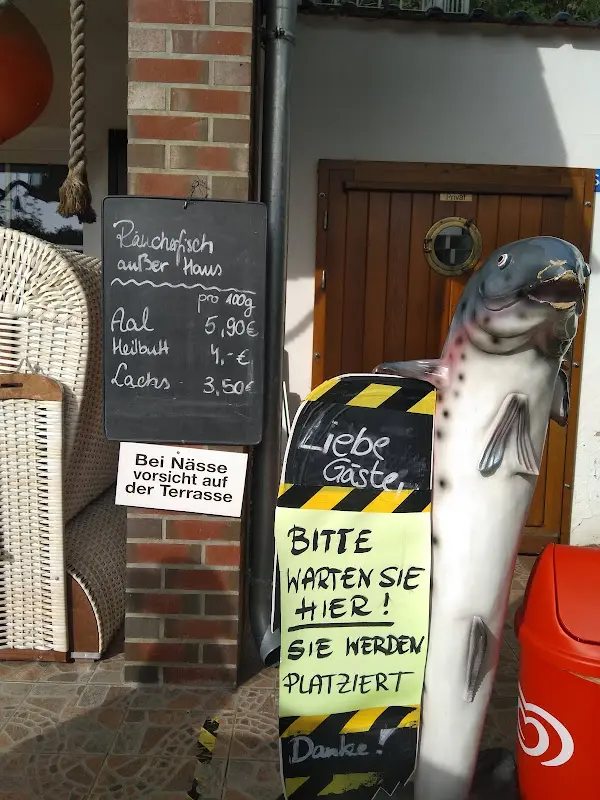 Räucherfisch
außer Haus
pro 100g
Aal 5,90€
Heilbutt 4,-€
Lachs 3,50€
Bei Nässe
vorsicht auf
der Terrasse
Privat
Liebe
Gäste,
BITTE
WARTEN SIE
HIER!
SIE WERDEN
PLATZIERT
Danke!